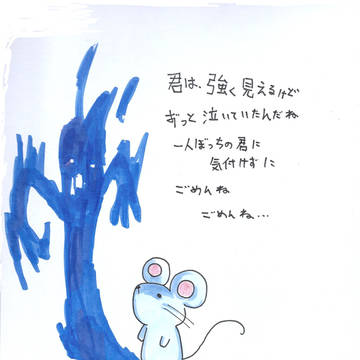 君は、強く見えるけど
ずっと泣いていたんだね
一人ぼっちの君に
気付けずに
ごめんね
ごめんね...